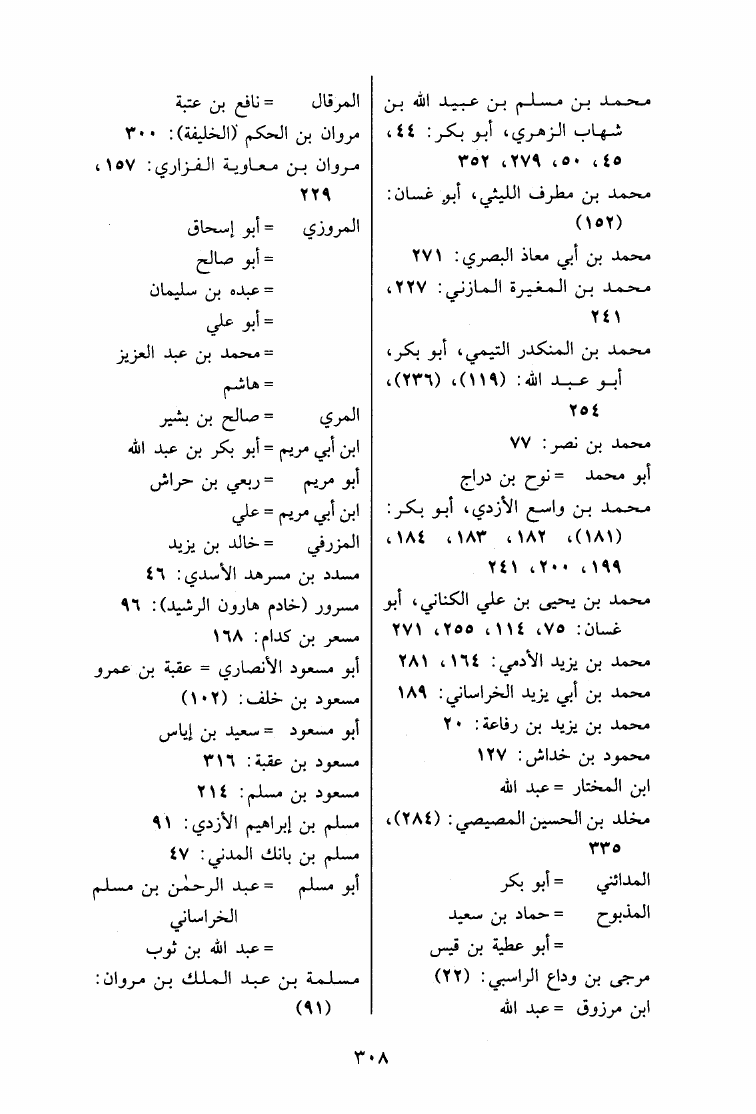 محمد بن مسلم بن عبيد الله بن
شهاب الزهري، أبو بكر: ٤٤،
٤٥، ٥٠، ٢٧٩، ٣٥٢
محمد بن مطرف الليثي، أبو غسان:
(١٥٢)
محمد بن أبي معاذ البصري: ٢٧١
محمد بن المغيرة المازني: ٢٢٧،
٢٤١
محمد بن المنكدر التيمي، أبو بكر،
أبو عبد الله: (١١٩)، (٢٣٦)،
٢٥٤
محمد بن نصر: ٧٧
أبو محمد = نوح بن دراج
محمد بن واسع الأزدي، أبو بكر:
(١٨١)، ١٨٢، ١٨٣، ١٨٤،
١٩٩، ٢٠٠، ٢٤١
محمد بن يحيى بن علي الكناني، أبو
غسان: ٧٥، ١١٤، ٢٥٥، ٢٧١
محمد بن يزيد الأدمي: ١٦٤، ٢٨١
محمد بن أبي يزيد الخراساني: ١٨٩
محمد بن يزيد بن رفاعة: ٢٠
محمود بن خداش: ١٢٧
ابن المختار = عبد الله
مخلد بن الحسين المصيصي: (٢٨٤)،
٣٣٥
المدائني = أبو بكر
المذبوح = حماد بن سعيد
= أبو عطية بن قيس
مرجى بن وداع الراسبي: (٢٢)
ابن مرزوق = عبد الله
المرقال = نافع بن عتبة
مروان بن الحكم (الخليفة): ٣٠٠
مروان بن معاوية الفزاري: ١٥٧،
٢٢٩
المروزي = أبو إسحاق
= أبو صالح
= عبده بن سليمان
= أبو علي
= محمد بن عبد العزيز
= هاشم
المري = صالح بن بشير
ابن أبي مريم = أبو بكر بن عبد الله
أبو مريم = ربعي بن حراش
ابن أبي مريم = علي
المزرفي = خالد بن يزيد
مسدد بن مسرهد الأسدي: ٤٦
مسرور (خادم هارون الرشيد): ٩٦
مسعر بن كدام: ١٦٨
أبو مسعود الأنصاري = عقبة بن عمرو
مسعود بن خلف: (١٠٢)
أبو مسعود = سعيد بن إياس
مسعود بن عقبة: ٣١٦
مسعود بن مسلم: ٢١٤
مسلم بن إبراهيم الأزدي: ٩١
مسلم بن بانك المدني: ٤٧
أبو مسلم = عبد الرحمٰن بن مسلم
الخراساني
= عبد الله بن ثوب
مسلمة بن عبد الملك بن مروان:
(٩١)
٣٠٨